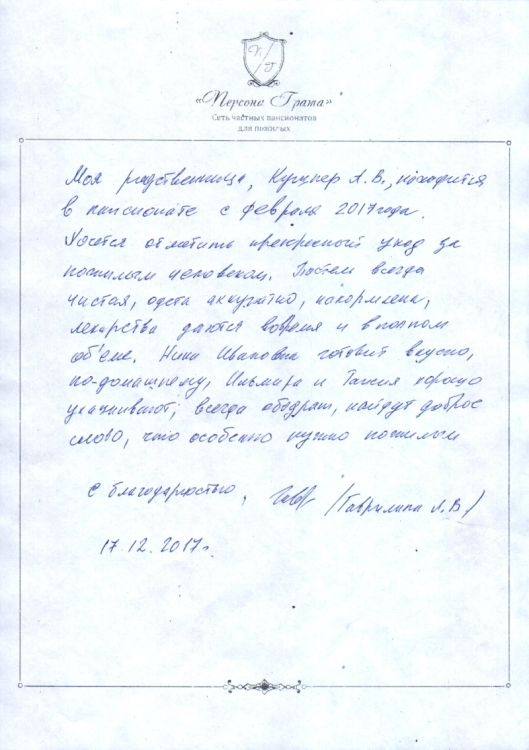 П Г
«Персона Грата»
Сеть частных пансионатов
для пожилых
Моя родственница, А. В., находится
в пансионате с февраля 2017 года.
Хочется отметить прекрасный уход за
пожилым человеком. Постель всегда
чистая, одета аккуратно, накормлена,
лекарства даются вовремя и в полном
об'ёме. Нина Ивановна готовит вкусно,
по-домашнему, Ильмира и Таисия хорошо
ухаживают; всегда ободрят, найдут доброе
слово, что особенно нужно пожилым
С благодарностью, /Гаврилина А. В/
17.12.2017г.